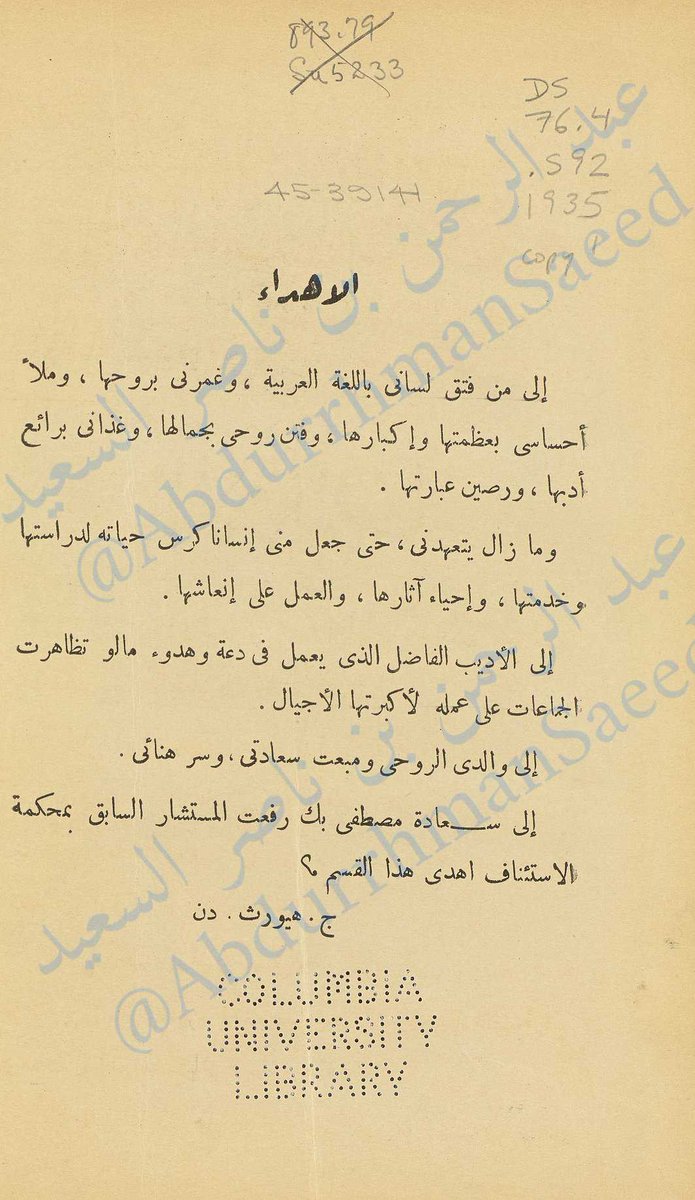 893.79
Su5233
DS
76.4
.S92
1935
copy 1
45-39141
الاهداء
إلى من فتق لسانى باللغة العربية ، وغمرنى بروحها ، وملأ
أحساسى بعظمتها وإكبارها ، وفتن روحى بجمالها ، وغذانى برائع
أدبها ، ورصين عبارتها .
وما زال يتعهدنى ، حتى جعل منى إنسانا كرس حياته لدراستها
وخدمتها ، وإحياء آثارها ، والعمل على إنعاشها .
إلى الأديب الفاضل الذى يعمل فى دعة وهدوء مالو تظاهرت
الجماعات على عمله لأكبرتها الأجيال .
إلى والدى الروحى ومبعت سعادتى ، وسر هنائى .
إلى سعادة مصطفى بك رفعت المستشار السابق بمحكمة
الاستئناف اهدى هذا القسم م؟
ج . هيورث . دن
COLUMBIA
UNIVERSITY
LIBRARY
عبد الرحمن بن ناصر السعيد
@AbdurrhmanSaeed
عبد الرحمن بن ناصر السعيد
@AbdurrhmanSaeed